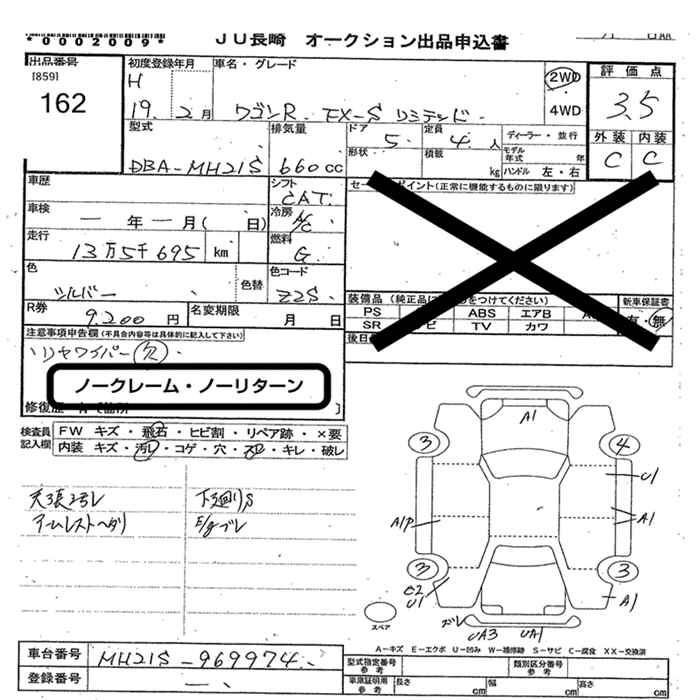 *0002009*
JU長崎 オークション出品申込書
出品番号
[859]
162
初度登録年月
H
19. 2月
車名・グレード
ワゴンR FX-S リミテッド
2WD
4WD
評価点
3.5
外装 内装
C C
型式
DBA-MH21S
排気量
660cc
ドア 5
形状
定員 4人
積載 kg
ディーラー・並行
モデル年式 年
ハンドル 左・右
車歴
シフト
CAT
車検
一年一月( 日)
冷房
A/C
走行
13万5千695 km
燃料
G
色
シルバー
色替
色コード
Z2S
R券
9,200円
名変期限
月 日
セールスポイント(正常に機能するものに限ります)
装備品
PS ABS エアB
SR TV カワ
新車保証書
有・無
注意事項申告欄(不具合内容等は具体的に記入して下さい)
リヤワイパー欠
ノークレーム・ノーリターン
修復歴
検査員記入欄
FW キズ・飛石・ヒビ割・リペア跡・×要
内装 キズ・汚レ・コゲ・穴・スレ・キレ・破レ
天張ヨゴレ
アームレストヘタリ
下廻りS
E/gブレ
A1
3
4
U1
A1P
A1
3
3
U1
A1
UA3 UA1
スペア
A-キズ E-エクボ U-凹み W-補修跡 S-サビ C-腐食 XX-交換済
車台番号
MH21S-969974
登録番号
型式指定番号
参考
類別区分番号
参考
車庫証明用
参考
長さ cm
幅 cm
高さ cm